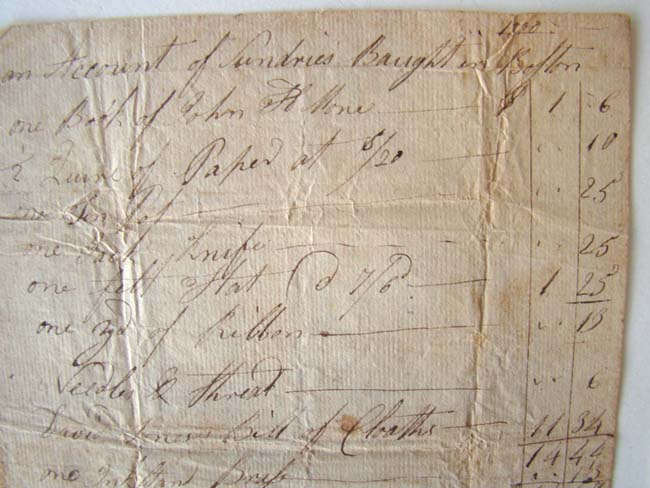 1800
an Account of Sundries Baught in Boston
one Book of John $ 1 6
½ Quire of Paper at /20 10
one 25
one Jack Knife 25
one felt Hat @ 7/6d 1 25
one yd of Ribbon 13
Needles & thread 6
David Bill of Cloaths 11 34
14 44
one Ink Stand Brass